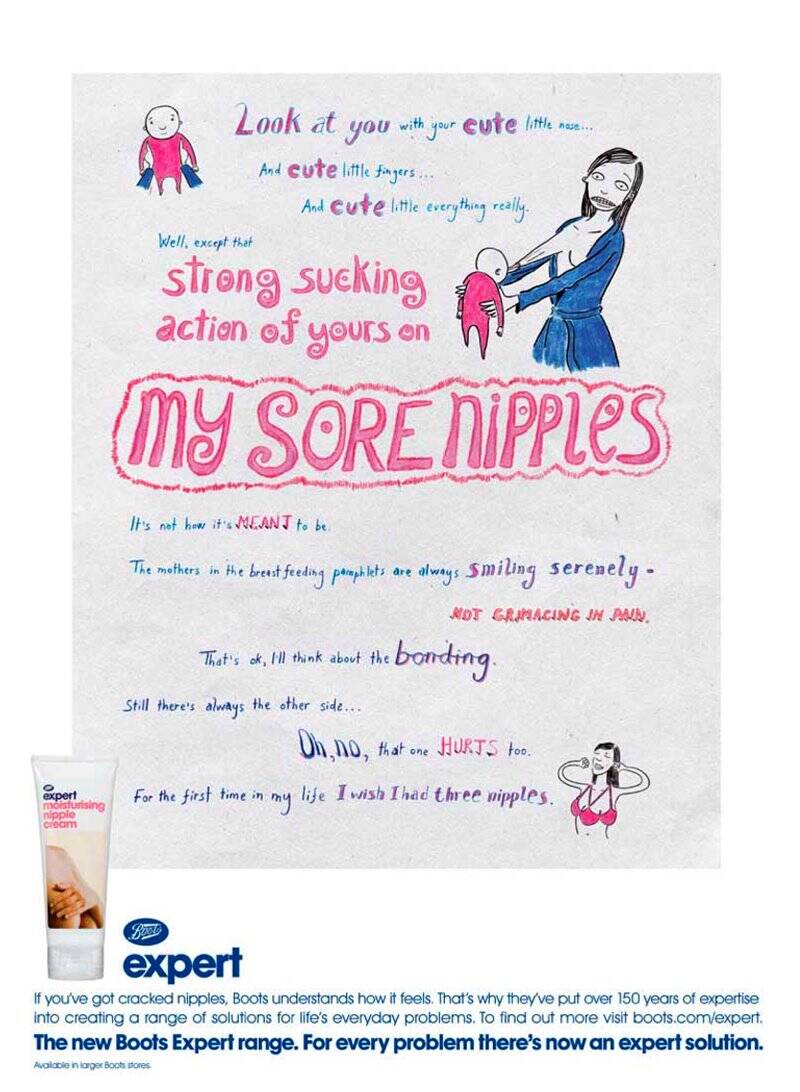 Look at you with your cute little nose...
And cute little fingers...
And cute little everything really.
Well, except that
strong sucking
action of yours on
my SORE nipples
It's not how it's MEANT to be.
The mothers in the breastfeeding pamphlets are always smiling serenely -
NOT GRIMACING IN PAIN.
That's ok, I'll think about the bonding.
Still there's always the other side...
Oh, no, that one HURTS too.
For the first time in my life I wish I had three nipples.
expert
moisturising
nipple
cream
Boots
expert
If you've got cracked nipples, Boots understands how it feels. That's why they've put over 150 years of expertise
into creating a range of solutions for life's everyday problems. To find out more visit boots.com/expert.
The new Boots Expert range. For every problem there's now an expert solution.
Available in larger Boots stores.